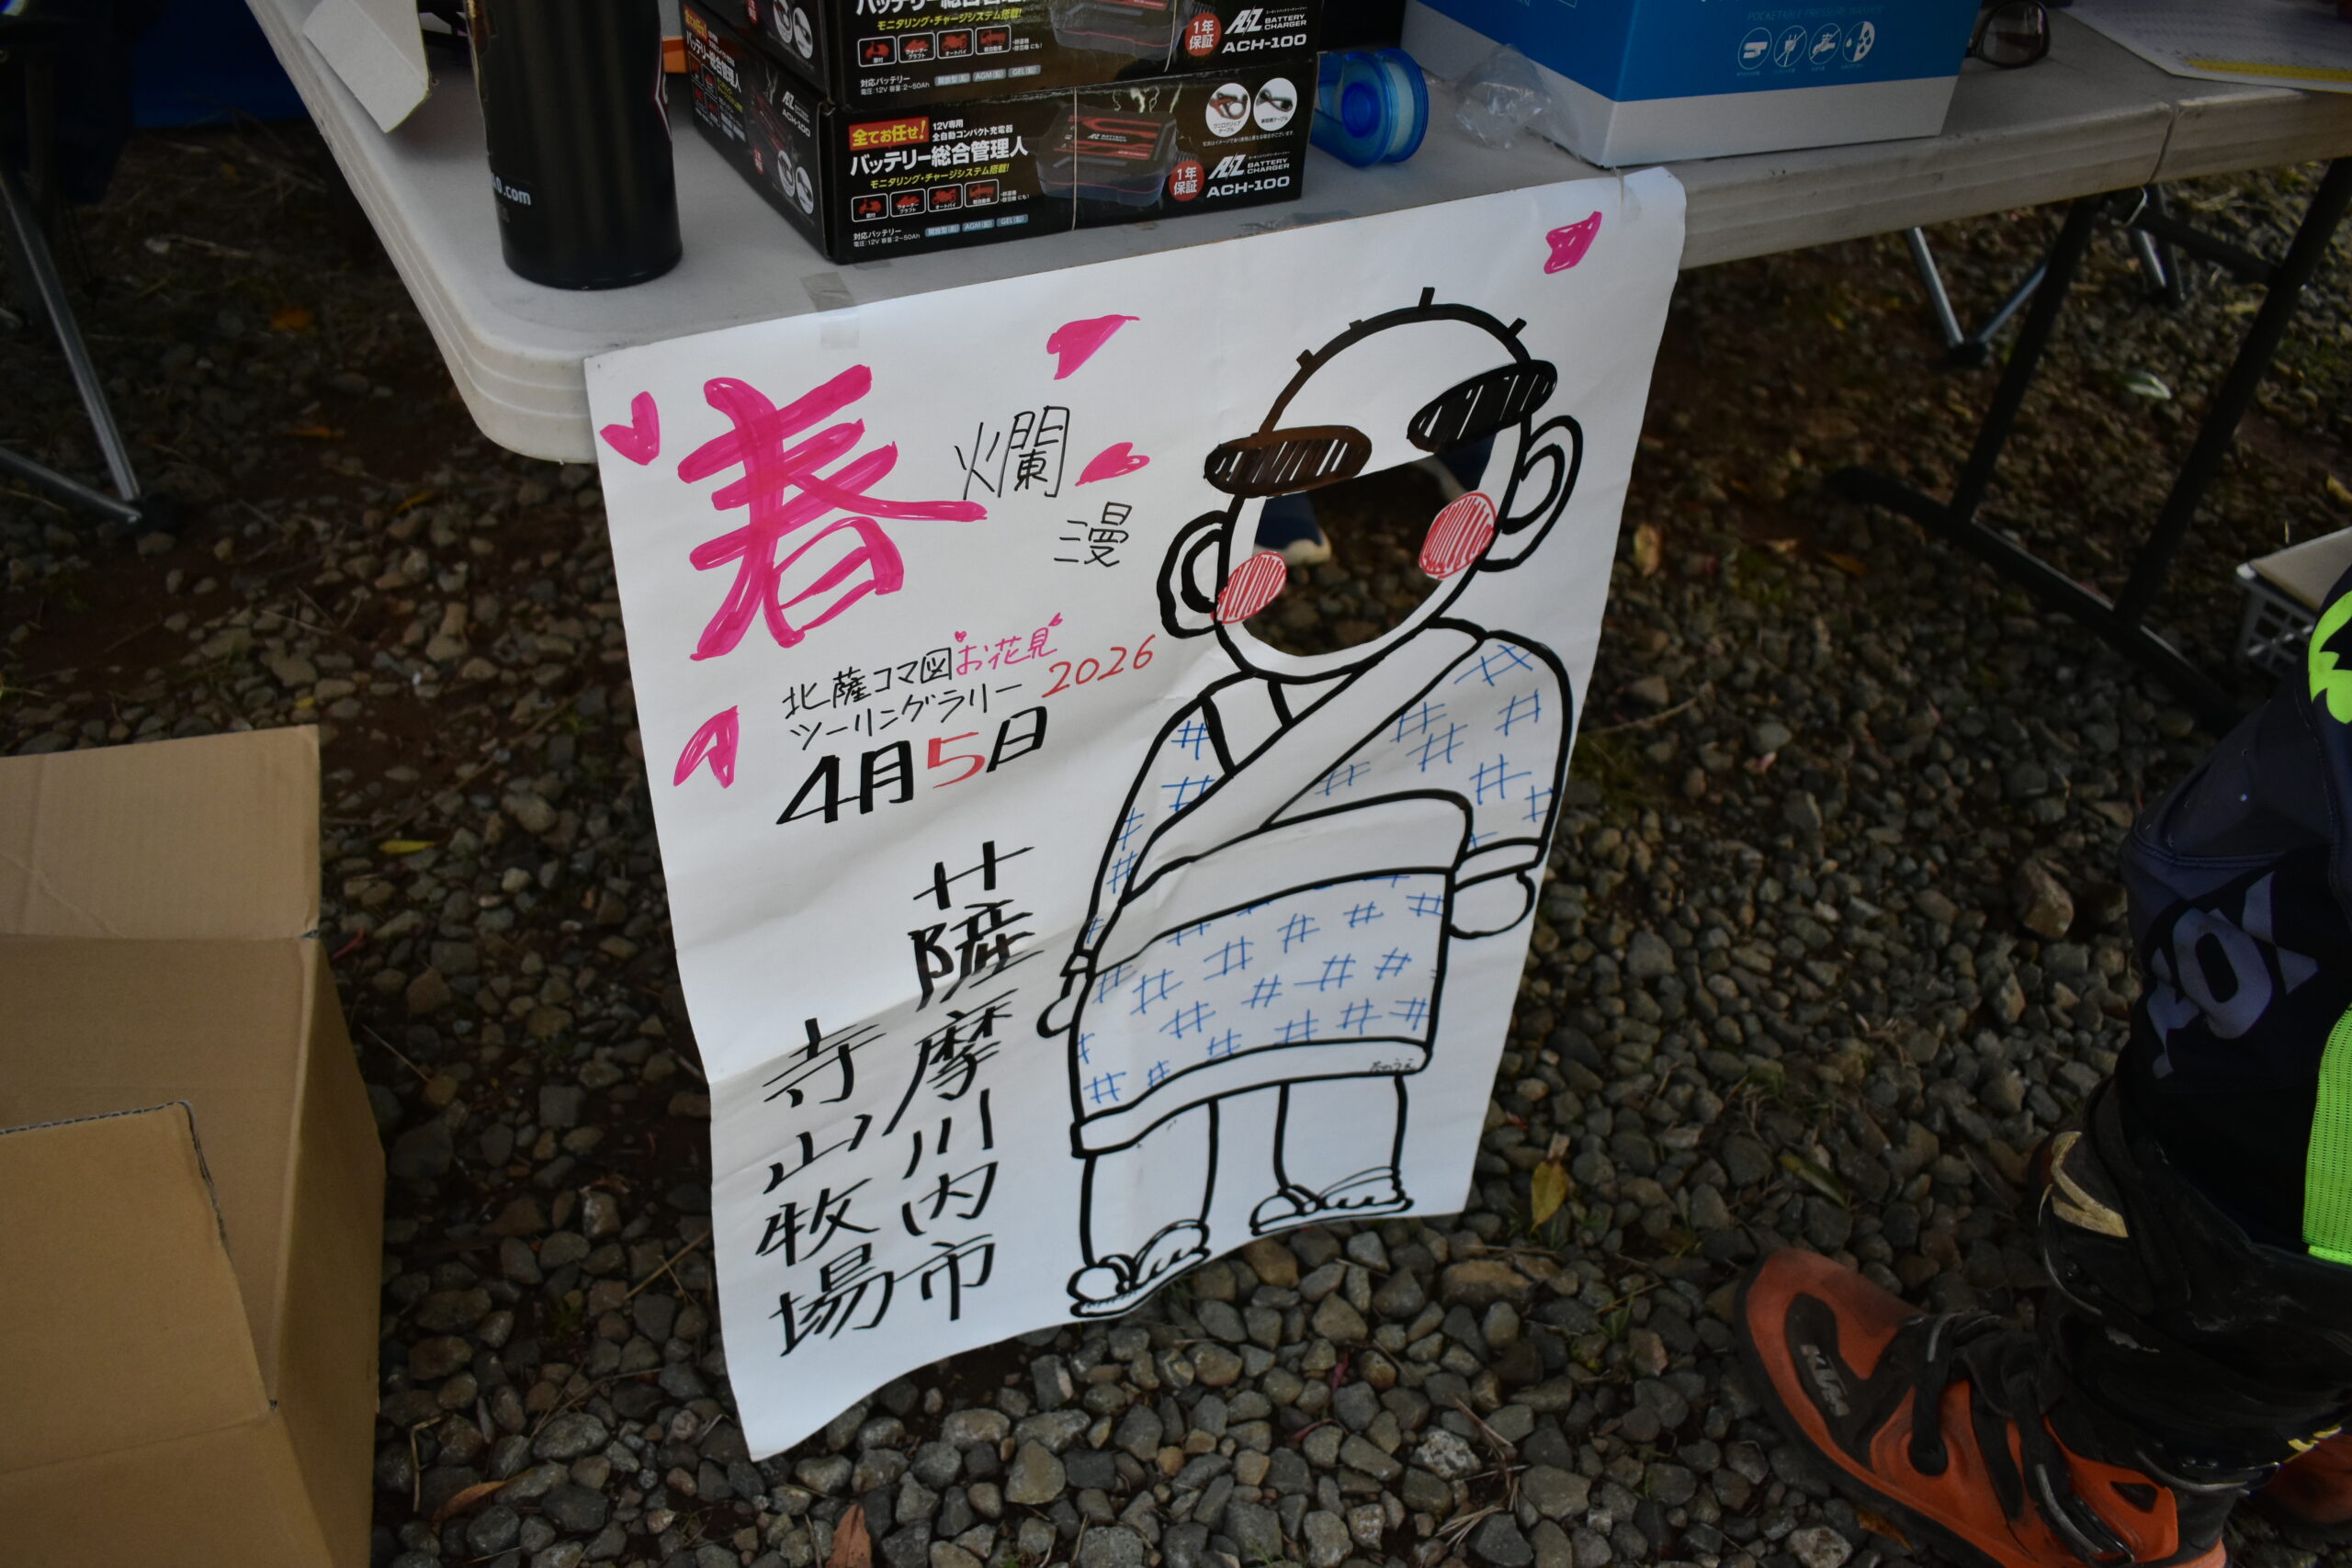 バッテリー総合管理人
モニタリング・チャージシステム搭載!
1年保証
AZ BATTERY CHARGER
ACH-100
対応バッテリー
電圧:12V 容量:2~50Ah
AGM(鉛)
GEL(鉛)
全てお任せ!
12V専用
全自動コンパクト充電器
バッテリー総合管理人
モニタリング・チャージシステム搭載!
1年保証
AZ BATTERY CHARGER
ACH-100
対応バッテリー
電圧:12V 容量:2~50Ah
AGM(鉛)
GEL(鉛)
春爛漫
北薩コマ図お花見
ツーリングラリー 2026
4月5日
薩摩川内市
寺山牧場
FOX